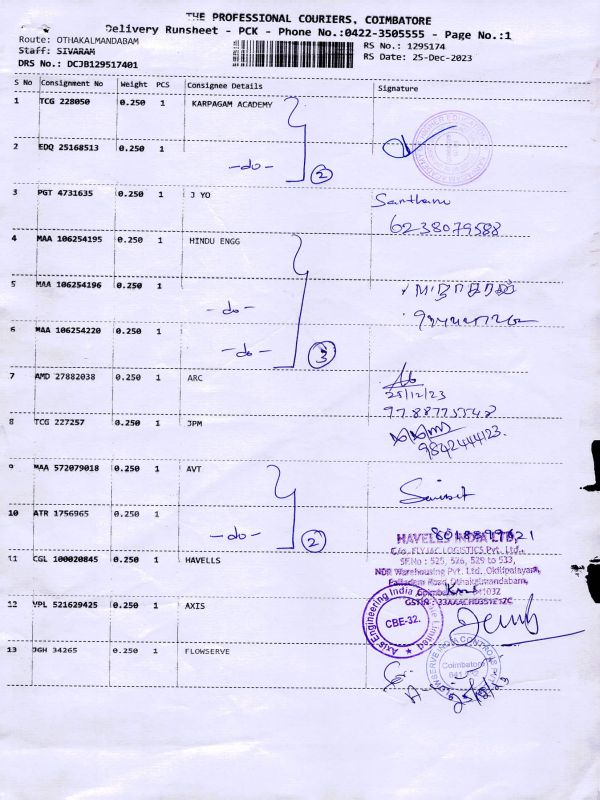 THE PROFESSIONAL COURIERS, COIMBATORE
Delivery Runsheet - PCK - Phone No.:0422-3505555 - Page No.:1
Route: OTHAKALMANDABAM
RS No.: 1295174
Staff: SIVARAM
RS Date: 25-Dec-2023
DRS No.: DCJB129517401
S No Consignment No Weight PCS Consignee Details Signature
1 TCG 228050 0.250 1 KARPAGAM ACADEMY
2 EDQ 25168513 0.250 1
-do- 2
3 PGT 4731635 0.250 1 J YO
6238079588
4 MAA 106254195 0.250 1 HINDU ENGG
5 MAA 106254196 0.250 1
-do-
6 MAA 106254220 0.250 1
-do- 3
7 AMD 27882038 0.250 1 ARC
25/12/23
8 TCG 227257 0.250 1 JPM
9842444123.
9 MAA 572079018 0.250 1 AVT
10 ATR 1756965 0.250 1
-do- 2
HAVELLS INDIA LTD,
C/o. FLYJAC LOGISTICS Pvt. Ltd.,
11 CGL 100020845 0.250 1 HAVELLS
SF.No : 525, 526, 529 to 533,
NDR Warehousing Pvt. Ltd. Okilipalayam,
Palladam Road, Othakalmandabam,
12 VPL 521629425 0.250 1 AXIS
Axis Engineering India Private Limited
CBE-32.
13 JGH 34265 0.250 1 FLOWSERVE
Coimbatore